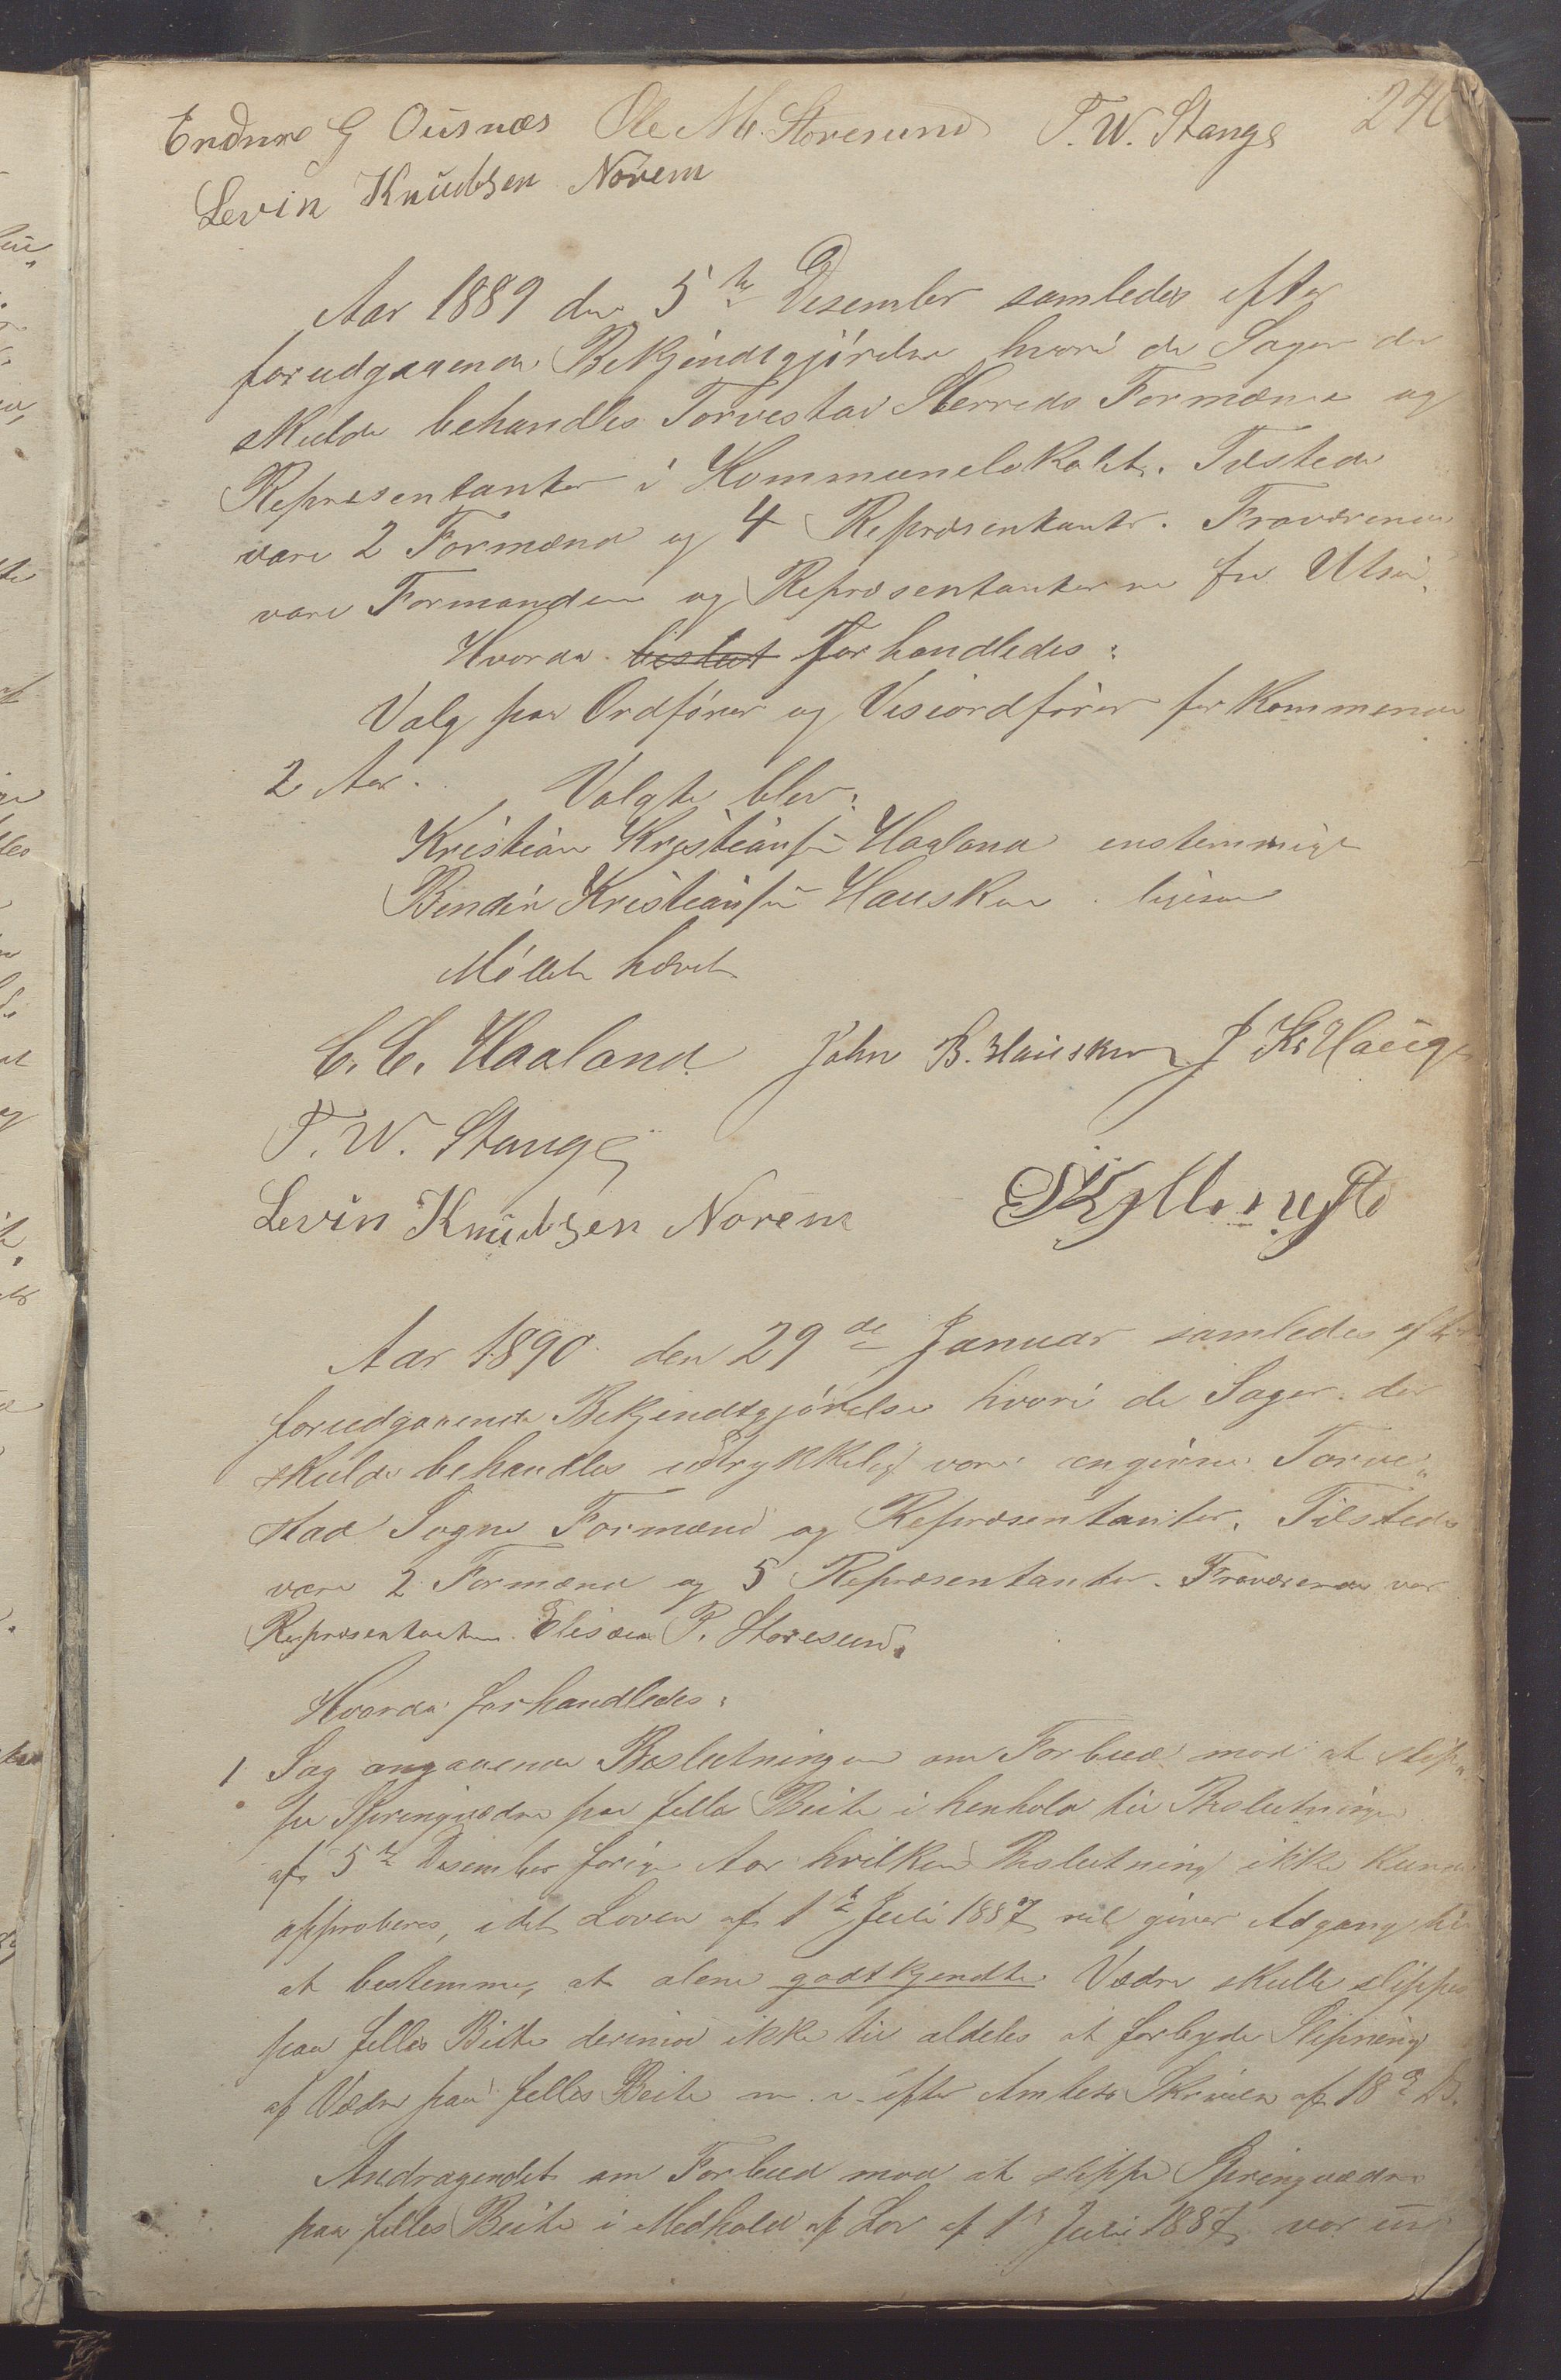 240
Endure G Ousnæs Ole M. Storesund T. W. Stange
Levin Knudtsen Norem
Aar 1889 den 5te Desember samledes efter
forudgaaende Bekjendtgjörelse hvori de Sager der
skulde behandles Torvestad Herreds Formænd og
Repræsentanter i Kommunelokalet. Tilstede
vare 2 Formænd og 4 Repræsentanter. Fraværende
vare Formanden og Repræsentanterne fra Utsir.
Hvorda beslut Forhandledes:
Valg paa Ordförer og Viseordförer for kommende
2 Aar. Valgte blev:
Kristian Kristiansen Haaland enstemmigt
Bendik Kristiansen Hausken ligesaa
Mödet hævet
C. C. Haaland John B. Hausken J Kr Hauge
T. W. Stange
Levin Knudtsen Norem
Aar 1890 den 29de Januar samledes efter
forudgaaende Bekjendtgjörelse hvori de Sager der
skulde behandles udtrykkelig vare angivne Torve„
stad Sogns Formænd og Repræsentanter. Tilstede
vare 2 Formænd og 5 Repræsentanter. Fraværende var
Repræsentanten Elisæus P. Storesund.
Hvorda forhandledes:
1 Sag angaaende Beslutningen om Forbud mod at slip„
pe Springvædre paa felles Beite i henhold til Beslutningen
af 5te Desember forige Aar hvilken Beslutning ikke kunde
approberes, idet Loven af 1te Juli 1887 vel giver Adgang til
at bestemme, at alene godtkjendte Vædre skulle slippes
paa felles Beite derimod ikke til aldeles at forbyde Slipning
af Vædre paa felles Beite m. v. efter Amtets Skrivelse af 18de ds.
Andragendet om Forbud mod at slippe Springvædre
paa felles Beite i Medhold af Lov af 1te Juli 1887 var